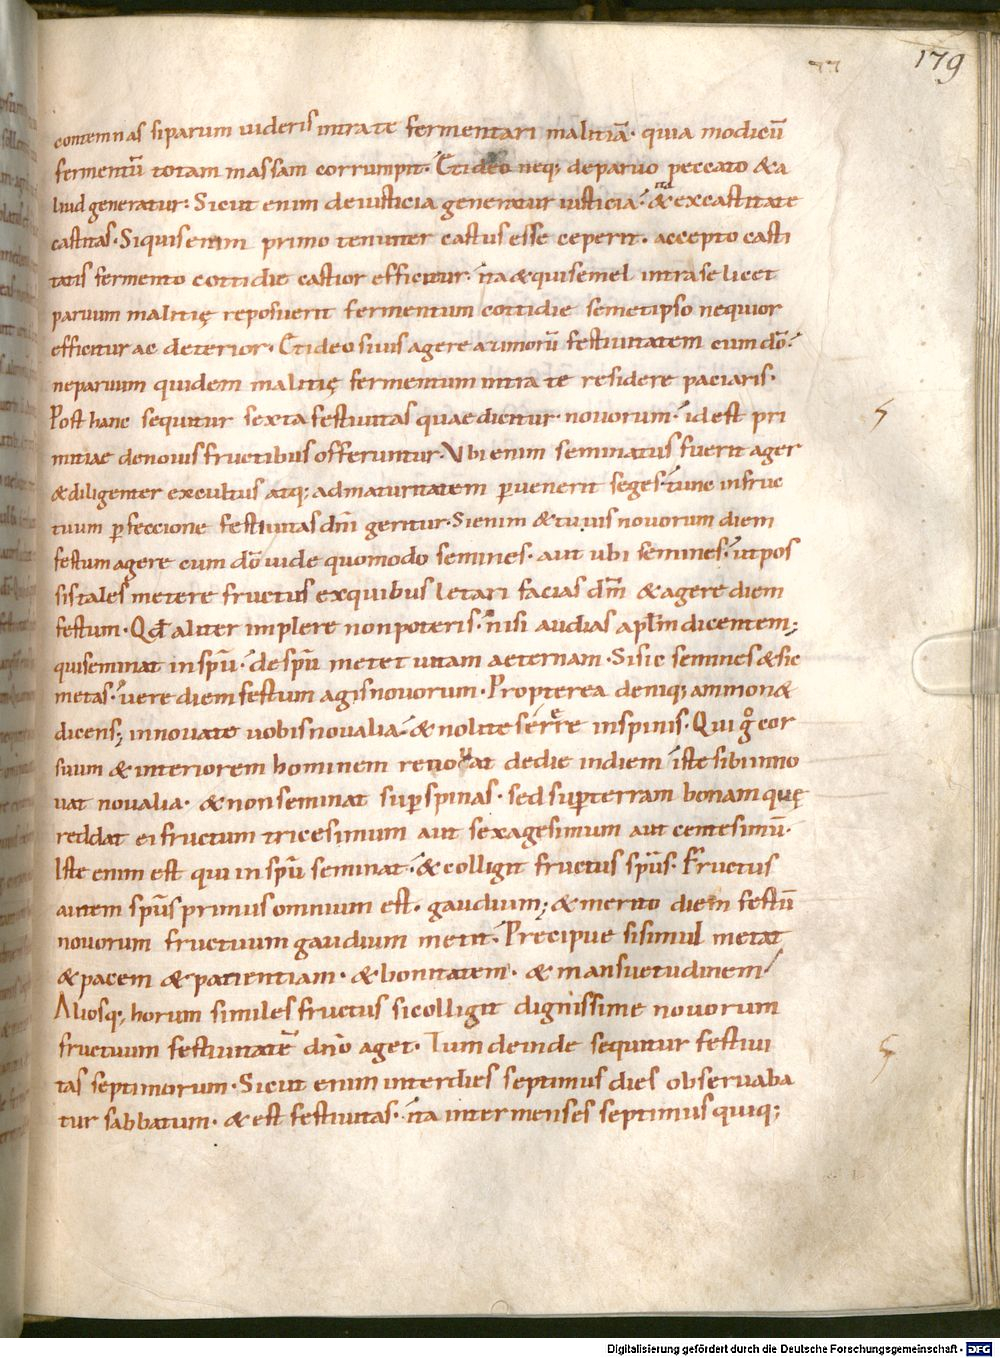 179
contemnas si parum uideris intra te fermentari malitiā· quia modicū
fermentū totam massam corrumpit· Et ideo neq; de paruo peccato & a
liud generatur: Sicut enim de iusticia generatur iusticia· ita & ex castitate
castitas· Si quis enim primo tenuiter castus esse ceperit· accepto casti
tatis fermento cottidie castior efficitur· ita & qui semel intra se licet
paruum malitię reposuerit fermentum cottidie semetipso nequior
efficitur ac deterior· Et ideo si uis agere azimorū festiuitatem cum dō·
ne paruum quidem malitię fermentum intra te residere paciaris·
Post hanc sequitur sexta festiuitas quae dicitur nouorum· id est pri
mitiae de nouis fructibus offeruntur· Vbi enim seminatus fuerit ager
& diligenter excultus atq; ad maturitatem ꝑuenerit seges· tunc in fruc
tuum ꝑfeccione festiuitas dn̄i geritur· Si enim & tu uis nouorum diem
festum agere cum dō uide quomodo semines· aut ubi semines· ut pos
sis tales metere fructus ex quibus letari facias dm̄ & agere diem
festum· Qđ aliter implere non poteris· nisi audias aplm̄ dicentem;
qui seminat in spū· de spū metet uitam aeternam· Si sic semines & sic
metas· uere diem festum agis nouorum· Propterea deniq; ammon&
dicens; innouate uobis noualia· & nolite serere in spinis· Qui g̊ cor
suum & interiorem hominem renouat de die in diem iste sibi inno
uat noualia· & non seminat suꝑ spinas· sed suꝑ terram bonam quę
reddat ei fructum tricesimum aut sexagesimum aut centesimū·
Iste enim est qui in spū seminat· & colligit fructus spūs· Fructus
autem spūs primus omnium est· gaudium; & merito diem festū
nouorum fructuum gaudium metit· Precipue si simul metat
& pacem & patientiam· & bonitatem· & mansuetudinem·
Aliosq; horum similes fructus si colligit dignissime nouorum
fructuum festiuitatē dn̄o aget· Tum deinde sequitur festiui
tas septimorum· Sicut enim inter dies septimus dies obseruaba
tur sabbatum· & est festiuitas· ita inter menses septimus quiq;
Digitalisierung gefördert durch die Deutsche Forschungsgemeinschaft - DFG